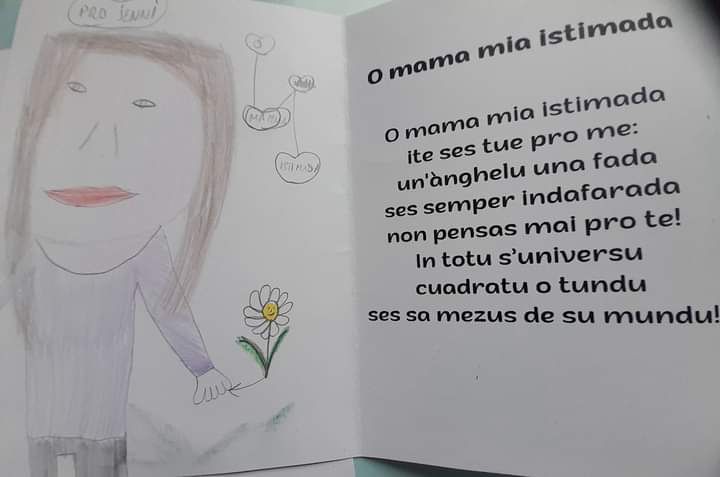 PRO JENNI
O
MAMA
ISTIMADA
O mama mia istimada
O mama mia istimada
ite ses tue pro me:
un'ànghelu una fada
ses semper indafarada
non pensas mai pro te!
In totu s'universu
cuadratu o tundu
ses sa mezus de su mundu!